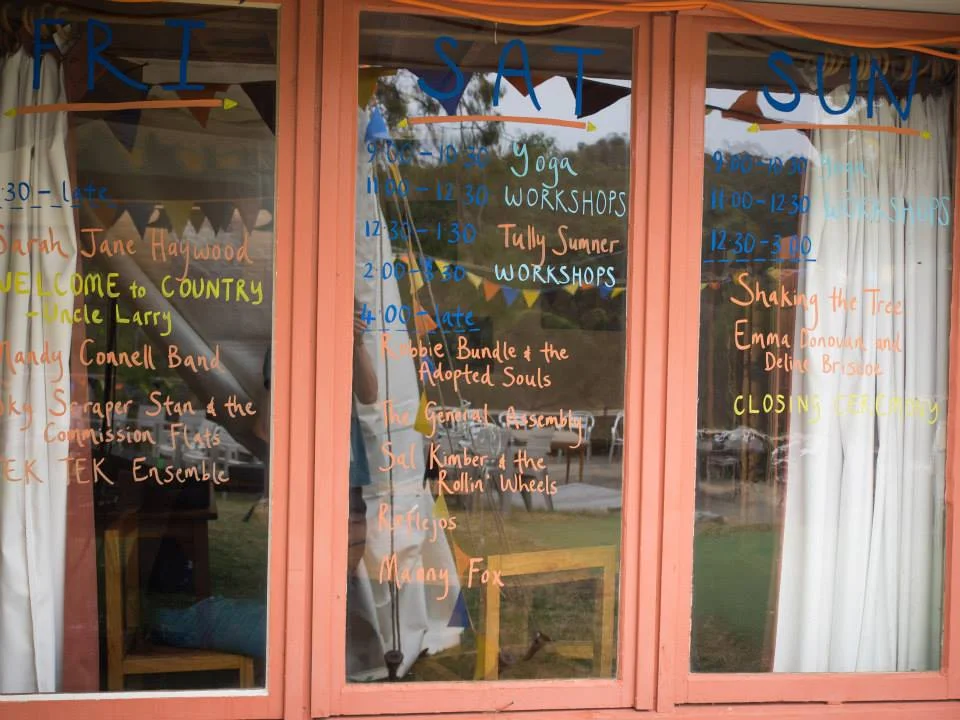 FRI
:30 - late
Sarah Jane Haywood
WELCOME to COUNTRY
- Uncle Larry
Mandy Connell Band
Sky Scraper Stan & the
Commission Flats
TEK TEK Ensemble
SAT
9:00 - 10:30 Yoga
11:00 - 12:30 WORKSHOPS
12:30 - 1:30 Tully Sumner
2:00 - 3:30 WORKSHOPS
4:00 - late
Robbie Bundle & the
Adopted Souls
The General Assembly
Sal Kimber & the
Rollin' Wheels
Reflejos
Manny Fox
SUN
9:00 - 10:30 Yoga
11:00 - 12:30 WORKSHOPS
12:30 - 3:00
Shaking the Tree
Emma Donovan and
Deline Briscoe
CLOSING CEREMONY